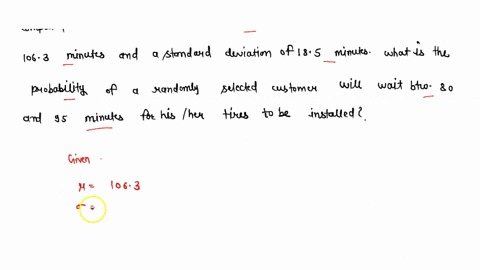 106.3 minutes and a standard deviation of 18.5 minutes. what is the
probability of a randomly selected customer will wait btw. 80
and 95 minutes for his/her tires to be installed?
Given.
μ = 106.3
σ =